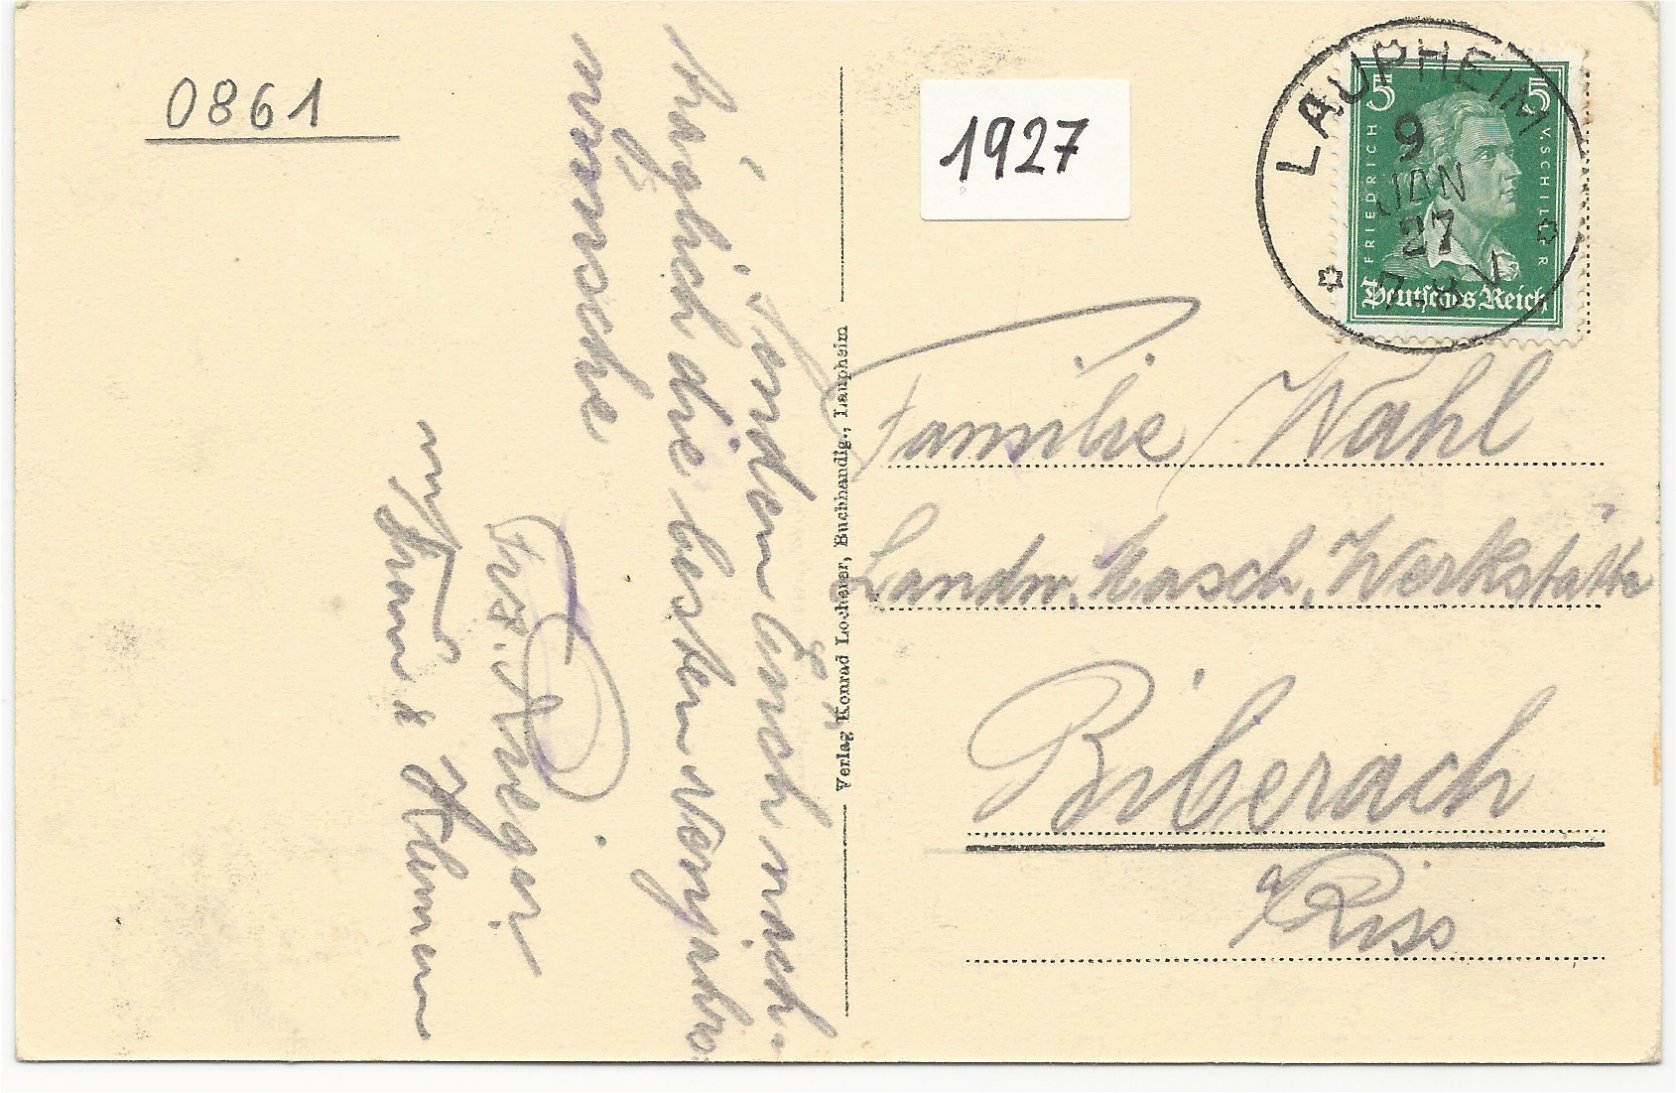 0861
1927
LAUPHEIM
9
JAN
27
7-8 V
5 5
FRIEDRICH V. SCHILLER
Deutsches Reich
Familie Wahl
Landw. Masch. Werkstätte
Biberach
a/Riss
Verlag Konrad Locherer, Buchhandlg., Laupheim
Senden Euch nach-
träglich die besten Neujahrs
wünsche